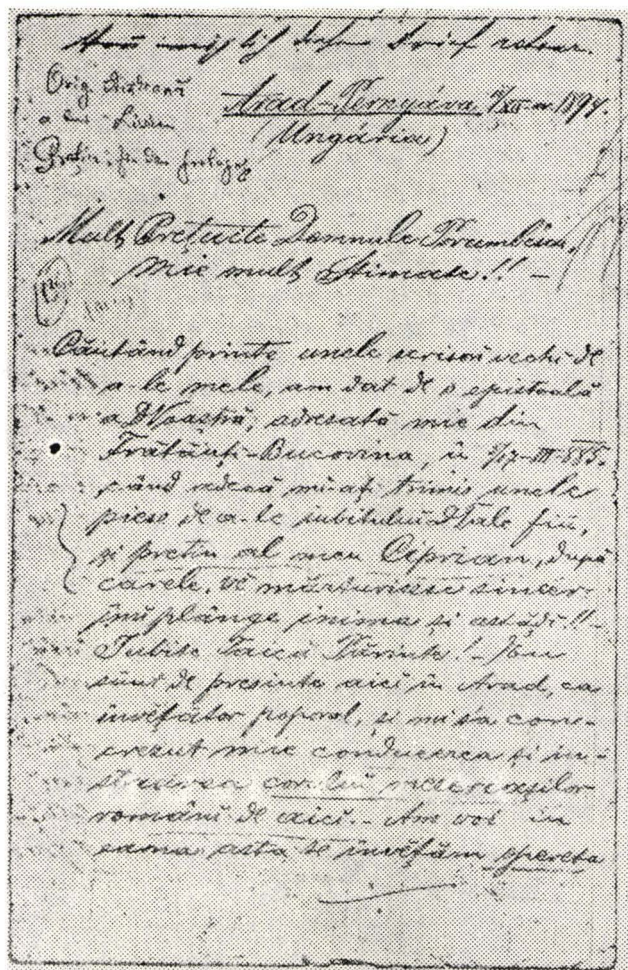 Orig.
a lui Liviu
Arad-Pernyáva XII 1894.
(Ungária)
Mult Prețuite Domnule Porumbescu,
Mie mult Stimate!! -
Căutând printe unele scrisori vechi de
a-le mele, am dat de o epistoală
a DVoastră, adresată mie din
Frătăuți-Bucovina, în III-885.
când adecă mi-ați trimis unele
piese de a-le iubitului DTale fiu,
și pretin al meu Ciprian, după
carele, vĕ mărturisesc sincer-
îmi plânge inima și astăḑi!! -
Iubite Taică Părinte! - Eu
sunt de presinte aici în Arad, ca
învĕțător poporal, și mi-s'a con-
crezut mie conducerea și in-
struarea corului meseriașilor
români de aici. - Am voi în
earna asta se învĕțăm opereta